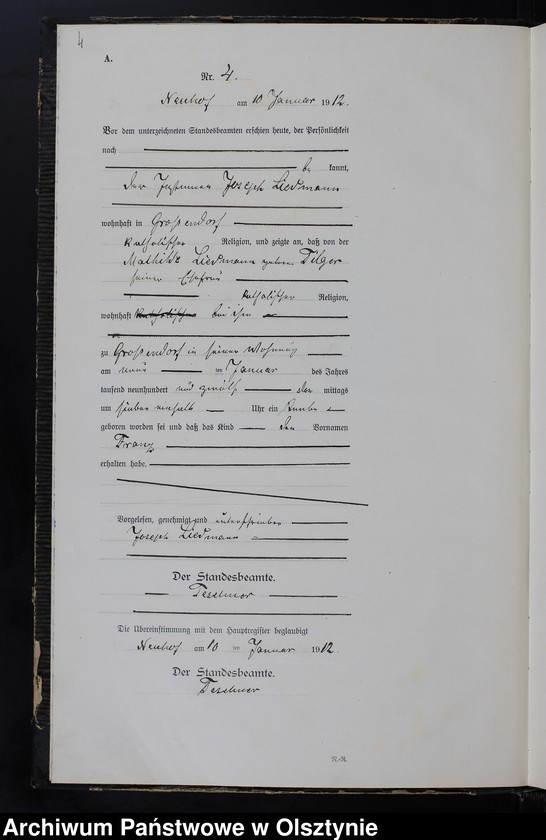 4
A.
Nr. 4.
Neuhof am 10 Januar 1912.
Vor dem unterzeichneten Standesbeamten erschien heute, der Persönlichkeit
nach
be kannt,
der Joseph Liedmann
wohnhaft in Großendorf
katholischer Religion, und zeigte an, daß von der
Mathilde Liedmann geborene Dilger
seiner Ehefrau
katholischer Religion,
wohnhaft katholischer bei ihm
zu Großendorf in seiner Wohnung
am neun im Januar des Jahres
tausend neunhundert und zwölf mittags
um sieben einhalb Uhr ein Knabe
geboren worden sei und daß das Kind den Vornamen
Franz
erhalten habe.
Vorgelesen, genehmigt und unterschrieben
Joseph Liedmann
Der Standesbeamte.
Die Übereinstimmung mit dem Hauptregister beglaubigt
Neuhof am 10 ten Januar 1912.
Der Standesbeamte.
N.-R.
Archiwum Państwowe w Olsztynie